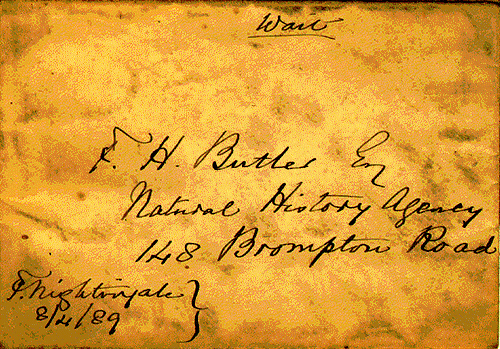 Wait
F. H. Butler Esq
Natural History Agency
148 Brompton Road
F. Nightingale
8/4/89